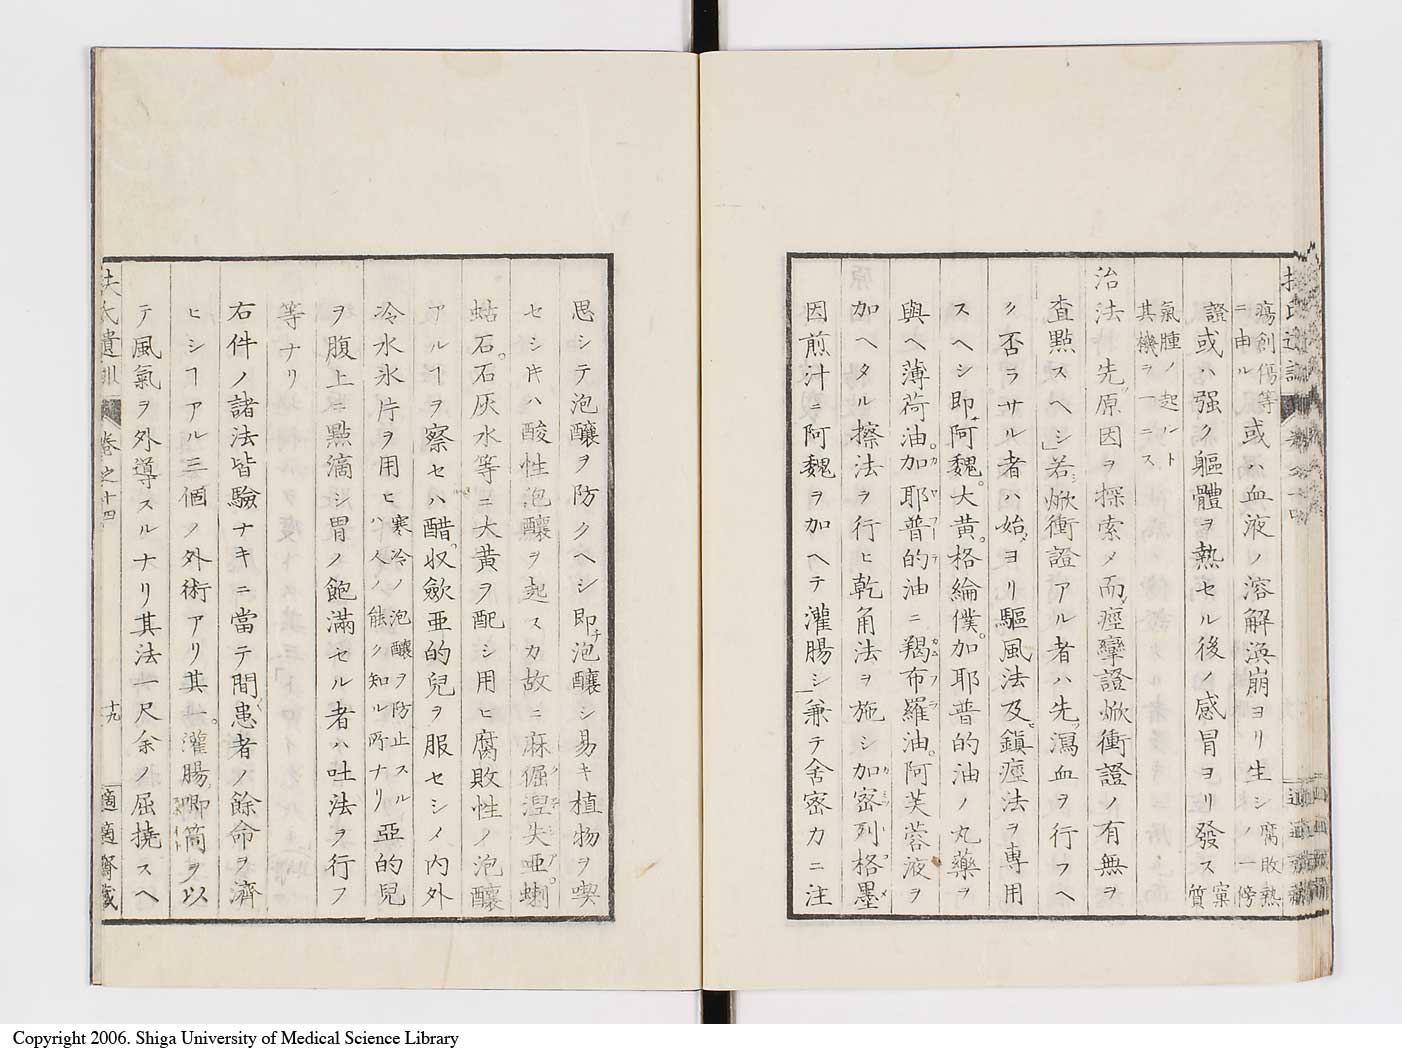 扶氏遺訓
瘍創傷等
ニ由ル 或ハ血液ノ溶解渙崩ヨリ生シ 腐敗熱
ノ一傍
證或ハ强ク軀體ヲ熱セル後ノ感冒ヨリ發ス 寔
質
氣腫ノ起ルト
其機ヲ一ニス
治法 先原因ヲ探索メ而痙攣證焮衝證ノ有無ヲ
査點スヘシ若焮衝證アル者ハ先瀉血ヲ行フヘ
ク否ラサル者ハ始ヨリ驅風法及鎮痙法ヲ専用
スヘシ即阿魏。大黄。格綸僕。加耶普的油ノ丸藥ヲ
與ヘ薄荷油。加耶普的油ニ羯布羅油。阿芙蓉液ヲ
加ヘタル擦法ヲ行ヒ乾角法ヲ施シ加密列格墨
因煎汁ニ阿魏ヲ加ヘテ灌腸シ兼テ舎密力ニ注
思シテ泡釀ヲ防クヘシ即泡釀シ易キ植物ヲ喫
セシ𪜈ハ酸性泡釀ヲ起スカ故ニ麻倔涅失亜。蝲
蛄石。石灰水等ニ大黄ヲ配シ用ヒ腐敗性ノ泡釀
アルヿヲ察セハ醋。収歛亜的兒ヲ服セシメ内外
冷水氷片ヲ用ヒ 寒冷ノ泡釀ヲ防止スル
ハ人ノ能ク知ル所ナリ 亞的兒
ヲ腹上ニ點滴シ胃ノ飽滿セル者ハ吐法ヲ行フ
等ナリ
右件ノ諸法皆驗ナキニ當テ間患者ノ餘命ヲ濟
ヒシヿアル三個ノ外術アリ其一。灌腸喞筒ヲ以
テ風氣ヲ外導スルナリ其法一尺余ノ屈撓スヘ
扶氏遺訓 卷之十四 十九 適適齋藏
Copyright 2006. Shiga University of Medical Science Library